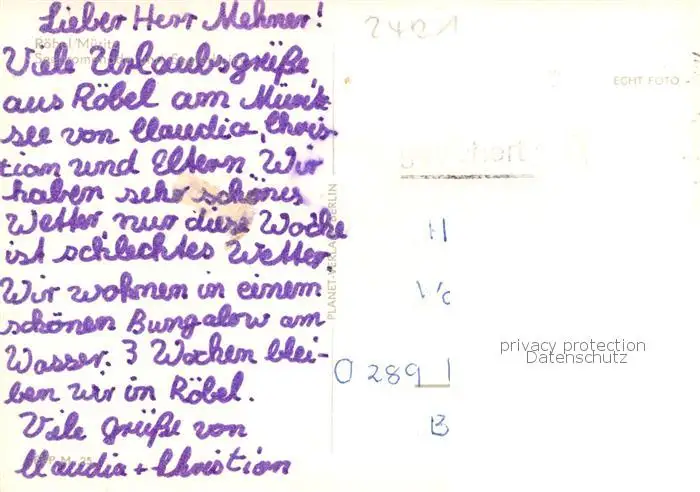 Lieber Herr Mehner!
Viele Urlaubsgrüße,
aus Röbel am Müritz-
see von Claudia, Chris-
tian und Eltern. Wir
haben sehr schönes
Wetter, nur diese Woche
ist schlechtes Wetter.
Wir wohnen in einem
schönen Bungalow am
Wasser. 3 Wochen blei-
ben wir in Röbel.
Viele grüße von
Claudia + Christian
Röbel/Müritz
PLANET-VERLAG BERLIN
2421
ECHT FOTO
H
O 289
B
privacy protection
Datenschutz